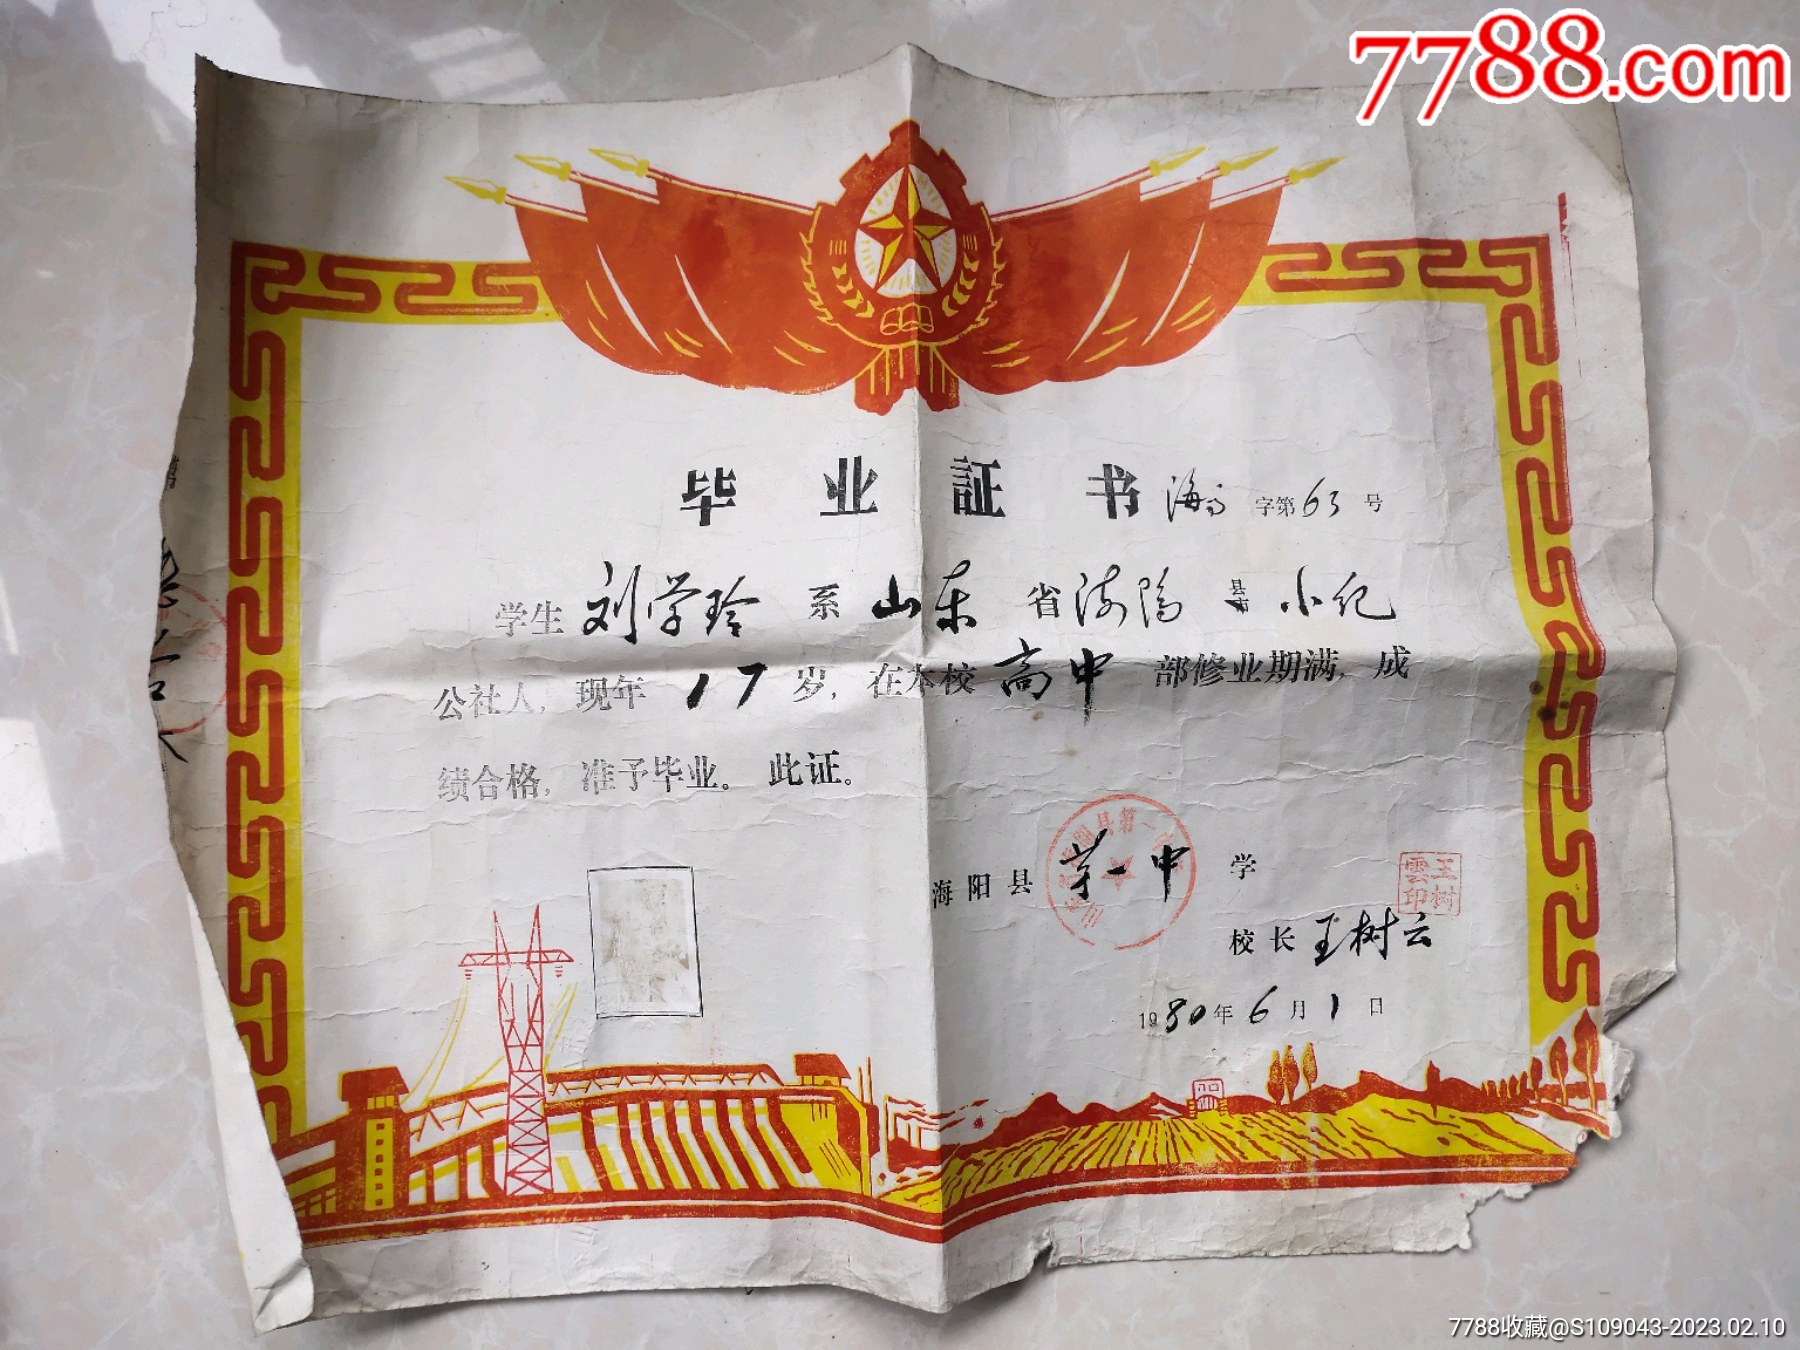 7788.com
毕业証书 海高字第63号
学生刘学玲系山东省海阳县市小纪
公社人，现年17岁，在本校高中部修业期满，成
绩合格，准予毕业。此证。
海阳县第一中学
王树雲印
校长王树云
1980年6月1日
7788收藏@S109043-2023.02.10